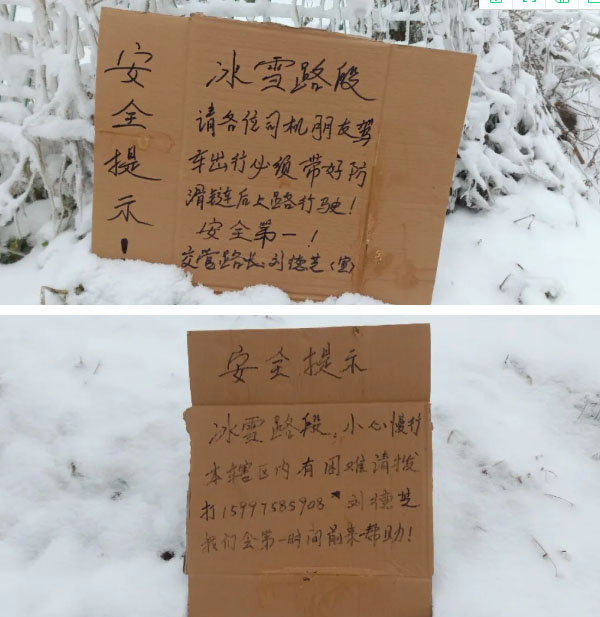 安全提示！
冰雪路段
请各位司机朋友驾
车出行必须带好防
滑链后上路行驶！
安全第一！
交管路长：刘德芝（宣）
安全提示
冰雪路段，小心慢行
本辖区内有困难请拨
打15997585908 刘德芝
我们会第一时间前来帮助！